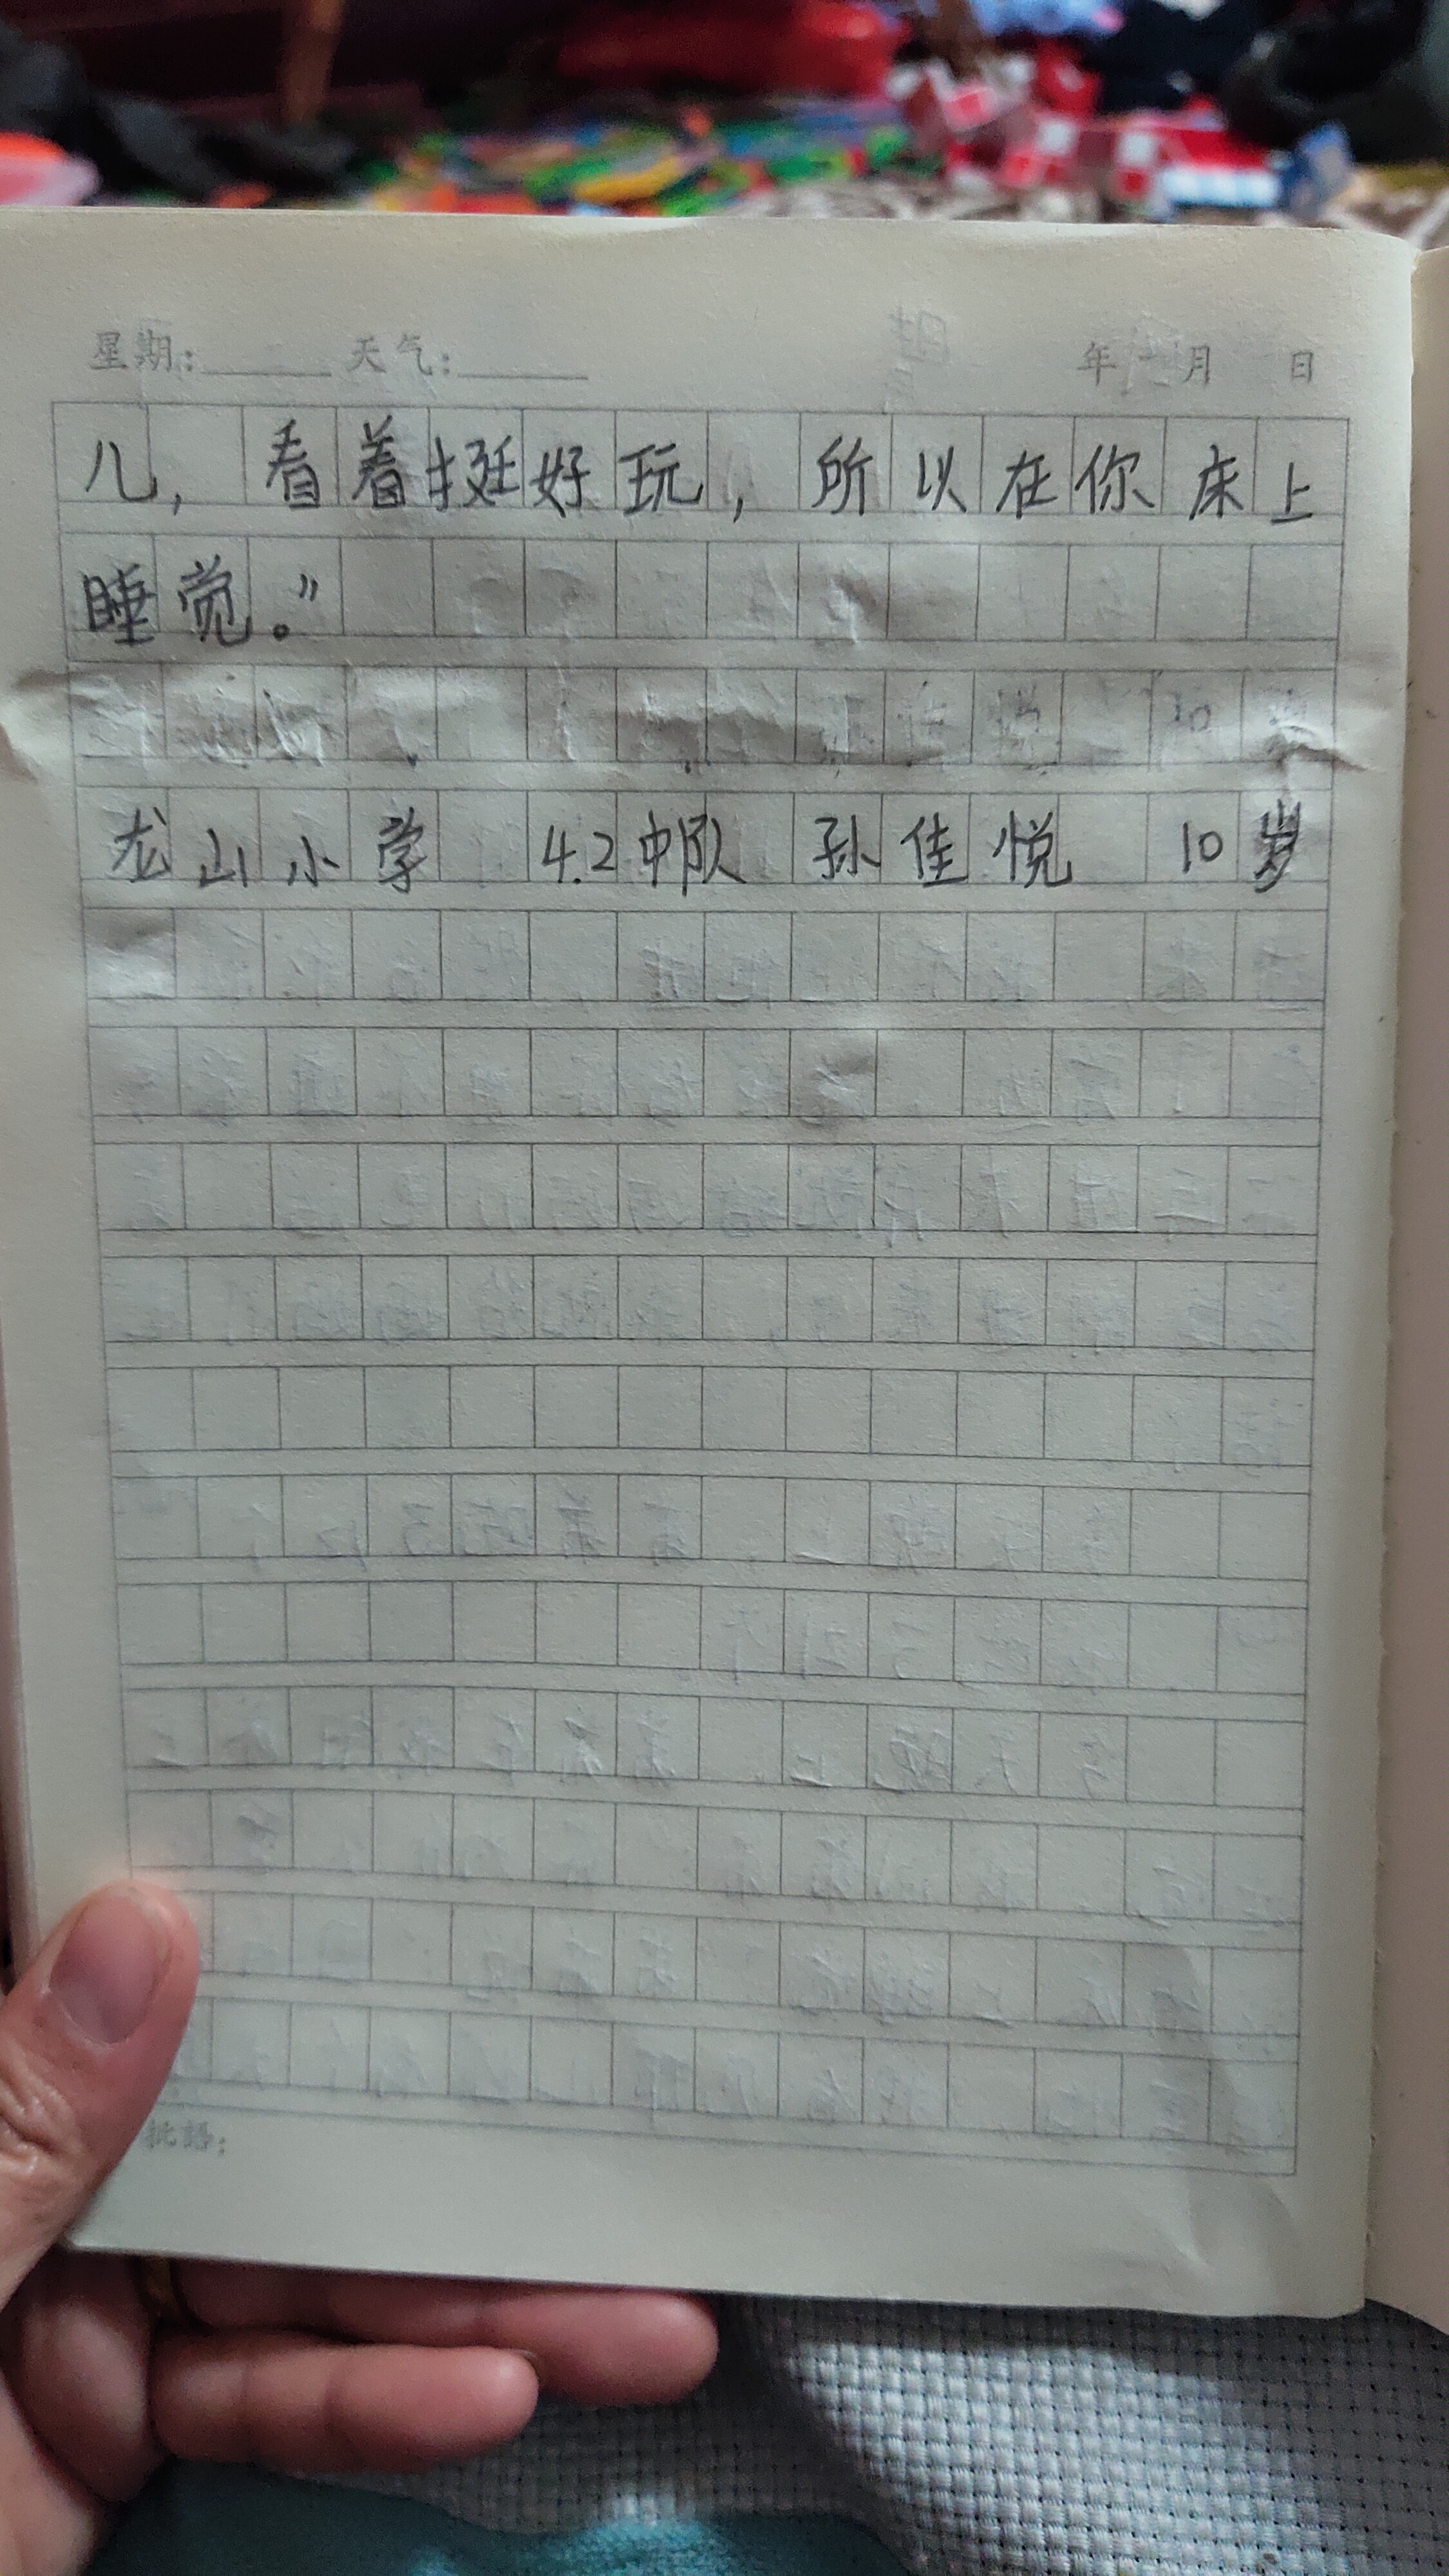 星期: 天气: 年 月 日
儿，看着挺好玩，所以在你床上
睡觉。”
龙山小学 4.2中队 孙佳悦 10岁
批语: